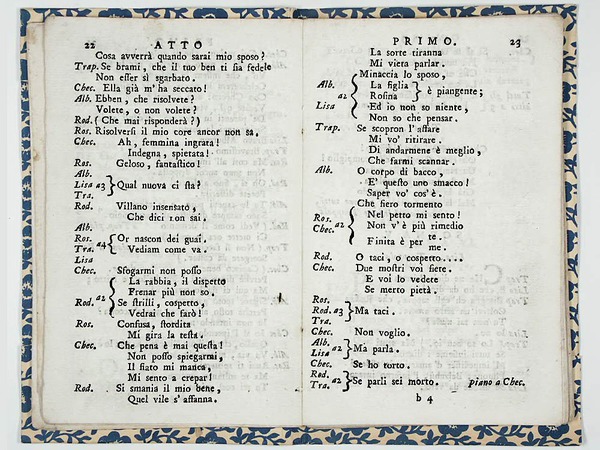 22 ATTO
Cosa avverrà quando sarai mio sposo?
Trap. Se brami, che il tuo ben ti sia fedele
Non esser sì sgarbato.
Chec. Ella già m' ha seccato!
Alb. Ebben, che risolvete?
Volete, o non volete?
Rod. (Che mai risponderà?)
Ros. Risolversi il mio core ancor non sa.
Chec. Ah, femmina ingrata!
Indegna, spietata!
Ros. Geloso, fantastico!
Alb.
Lisa a3 Qual nuova ci sta?
Tra.
Rod. Villano insensato,
Che dici non sai.
Alb.
Ros. Or nascon dei guai.
Tra. a4 Vediam come va.
Lisa
Chec. Sfogarmi non posso
La rabbia, il dispetto
Frenar più non so.
Rod. a2 Se strilli, cospetto,
Vedrai che farò!
Ros. Confusa, stordita
Mi gira la testa.
Chec. Che pena è mai questa!
Non posso spiegarmi,
Il fiato mi manca,
Mi sento a crepar!
Rod. Si smania il mio bene,
Quel vile s' affanna.
PRIMO. 23
La sorte tiranna
Mi viera parlar.
Minaccia lo sposo,
Alb. La figlia
a2 Rosina è piangente;
Lisa Ed io non so niente,
Non so che pensar.
Trap. Se scopron l' affare
Mi vo' ritirare.
Di andarmene è meglio,
Che farmi scannar.
Alb. O corpo di bacco,
E' questo uno smacco!
Saper vo' cos' è.
Che fiero tormento
Ros. Nel petto mi sento!
Chec. a2 Non v' è più rimedio
Finita è per te.
me.
Rod. O taci, o cospetto....
Chec. Due mostri voi siete.
E voi lo vedete
Se merto pietà.
Ros.
Rod. a3 Ma taci.
Tra.
Chec. Non voglio.
Alb.
Lisa a2 Ma parla.
Chec. Se ho torto.
Rod.
Tra. a2 Se parli sei morto. piano a Chec.
b 4